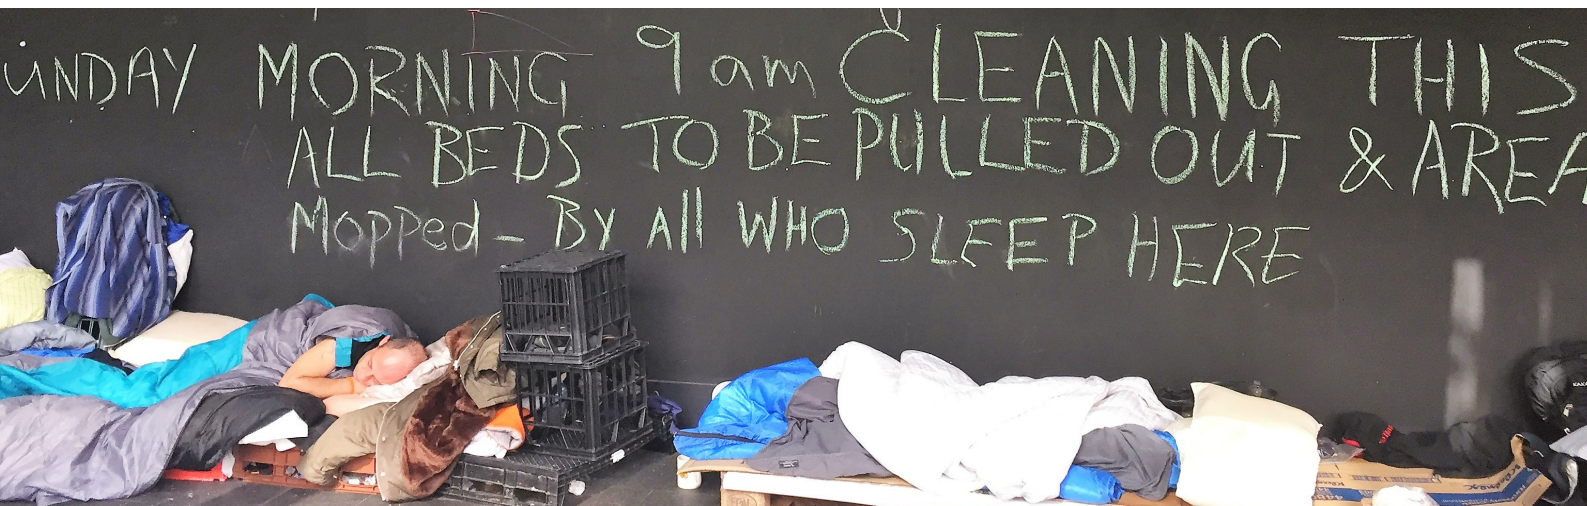 UNDAY MORNING 9am CLEANING THIS
ALL BEDS TO BE PULLED OUT & AREA
MOPPed - BY All WHO SLEEP HERE